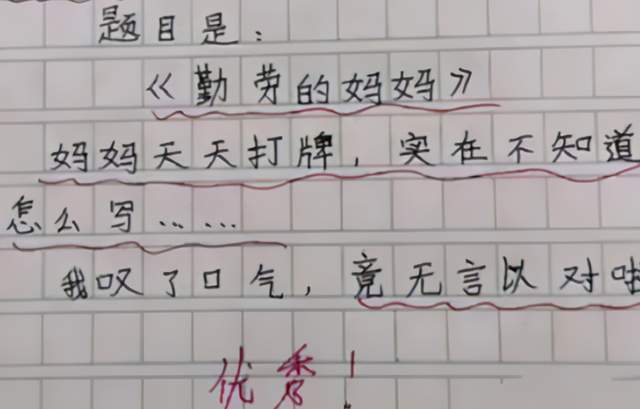 题目是：
《勤劳的妈妈》
妈妈天天打牌，实在不知道
怎么写……
我叹了口气，竟无言以对啦
优秀！